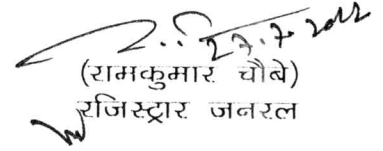 27.7.2022
(रामकुमार चौबे)
रजिस्ट्रार जनरल